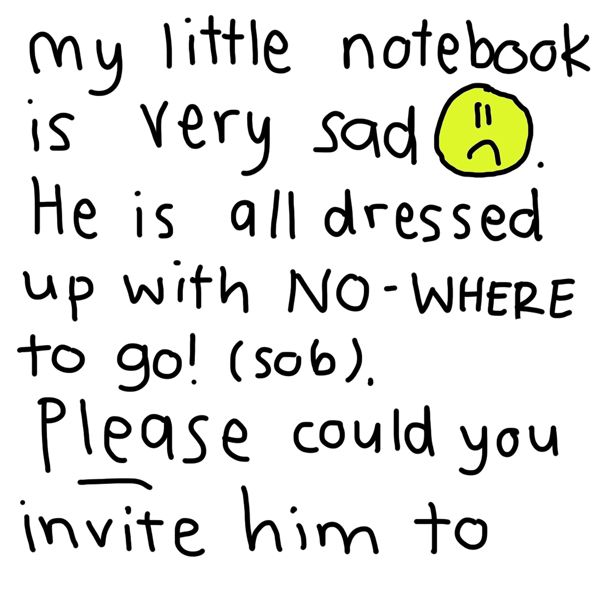 my little notebook
is very sad .
He is all dressed
up with NO-WHERE
to go! (sob).
Please could you
invite him to